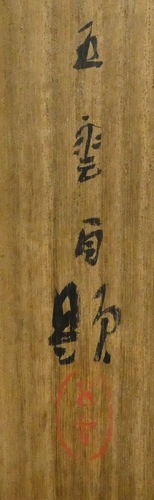 五雲自題